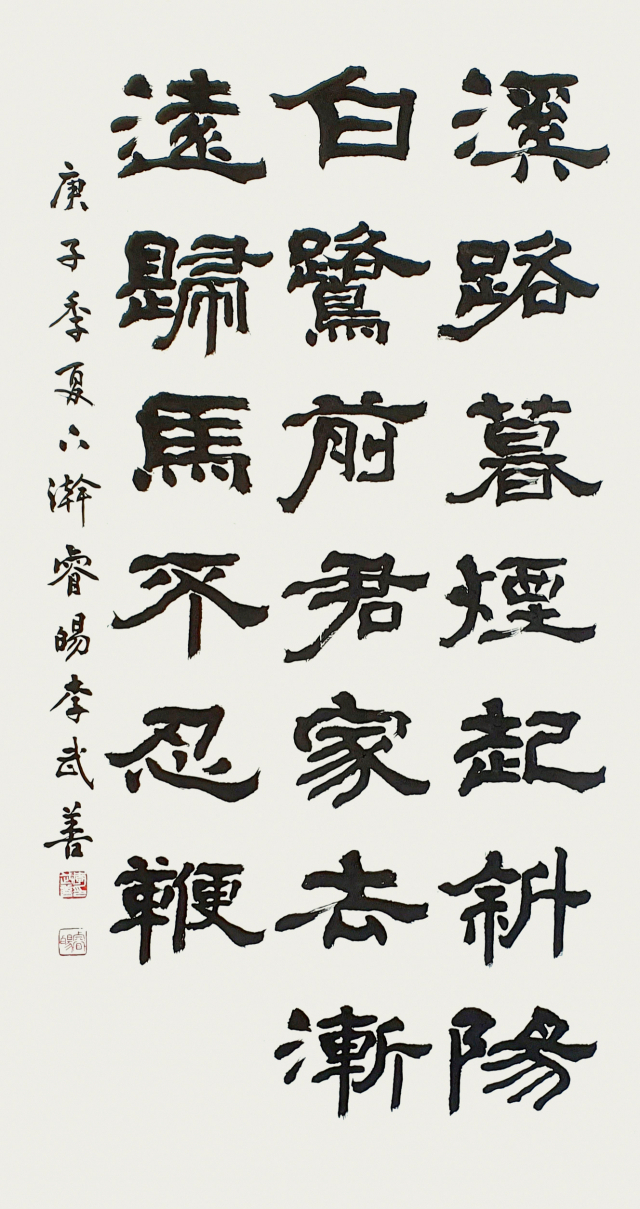 溪路暮煙起斜陽
白鷺前君家去漸
遠歸馬不忍鞭
庚子季夏下澣睿暘李武善
睿暘